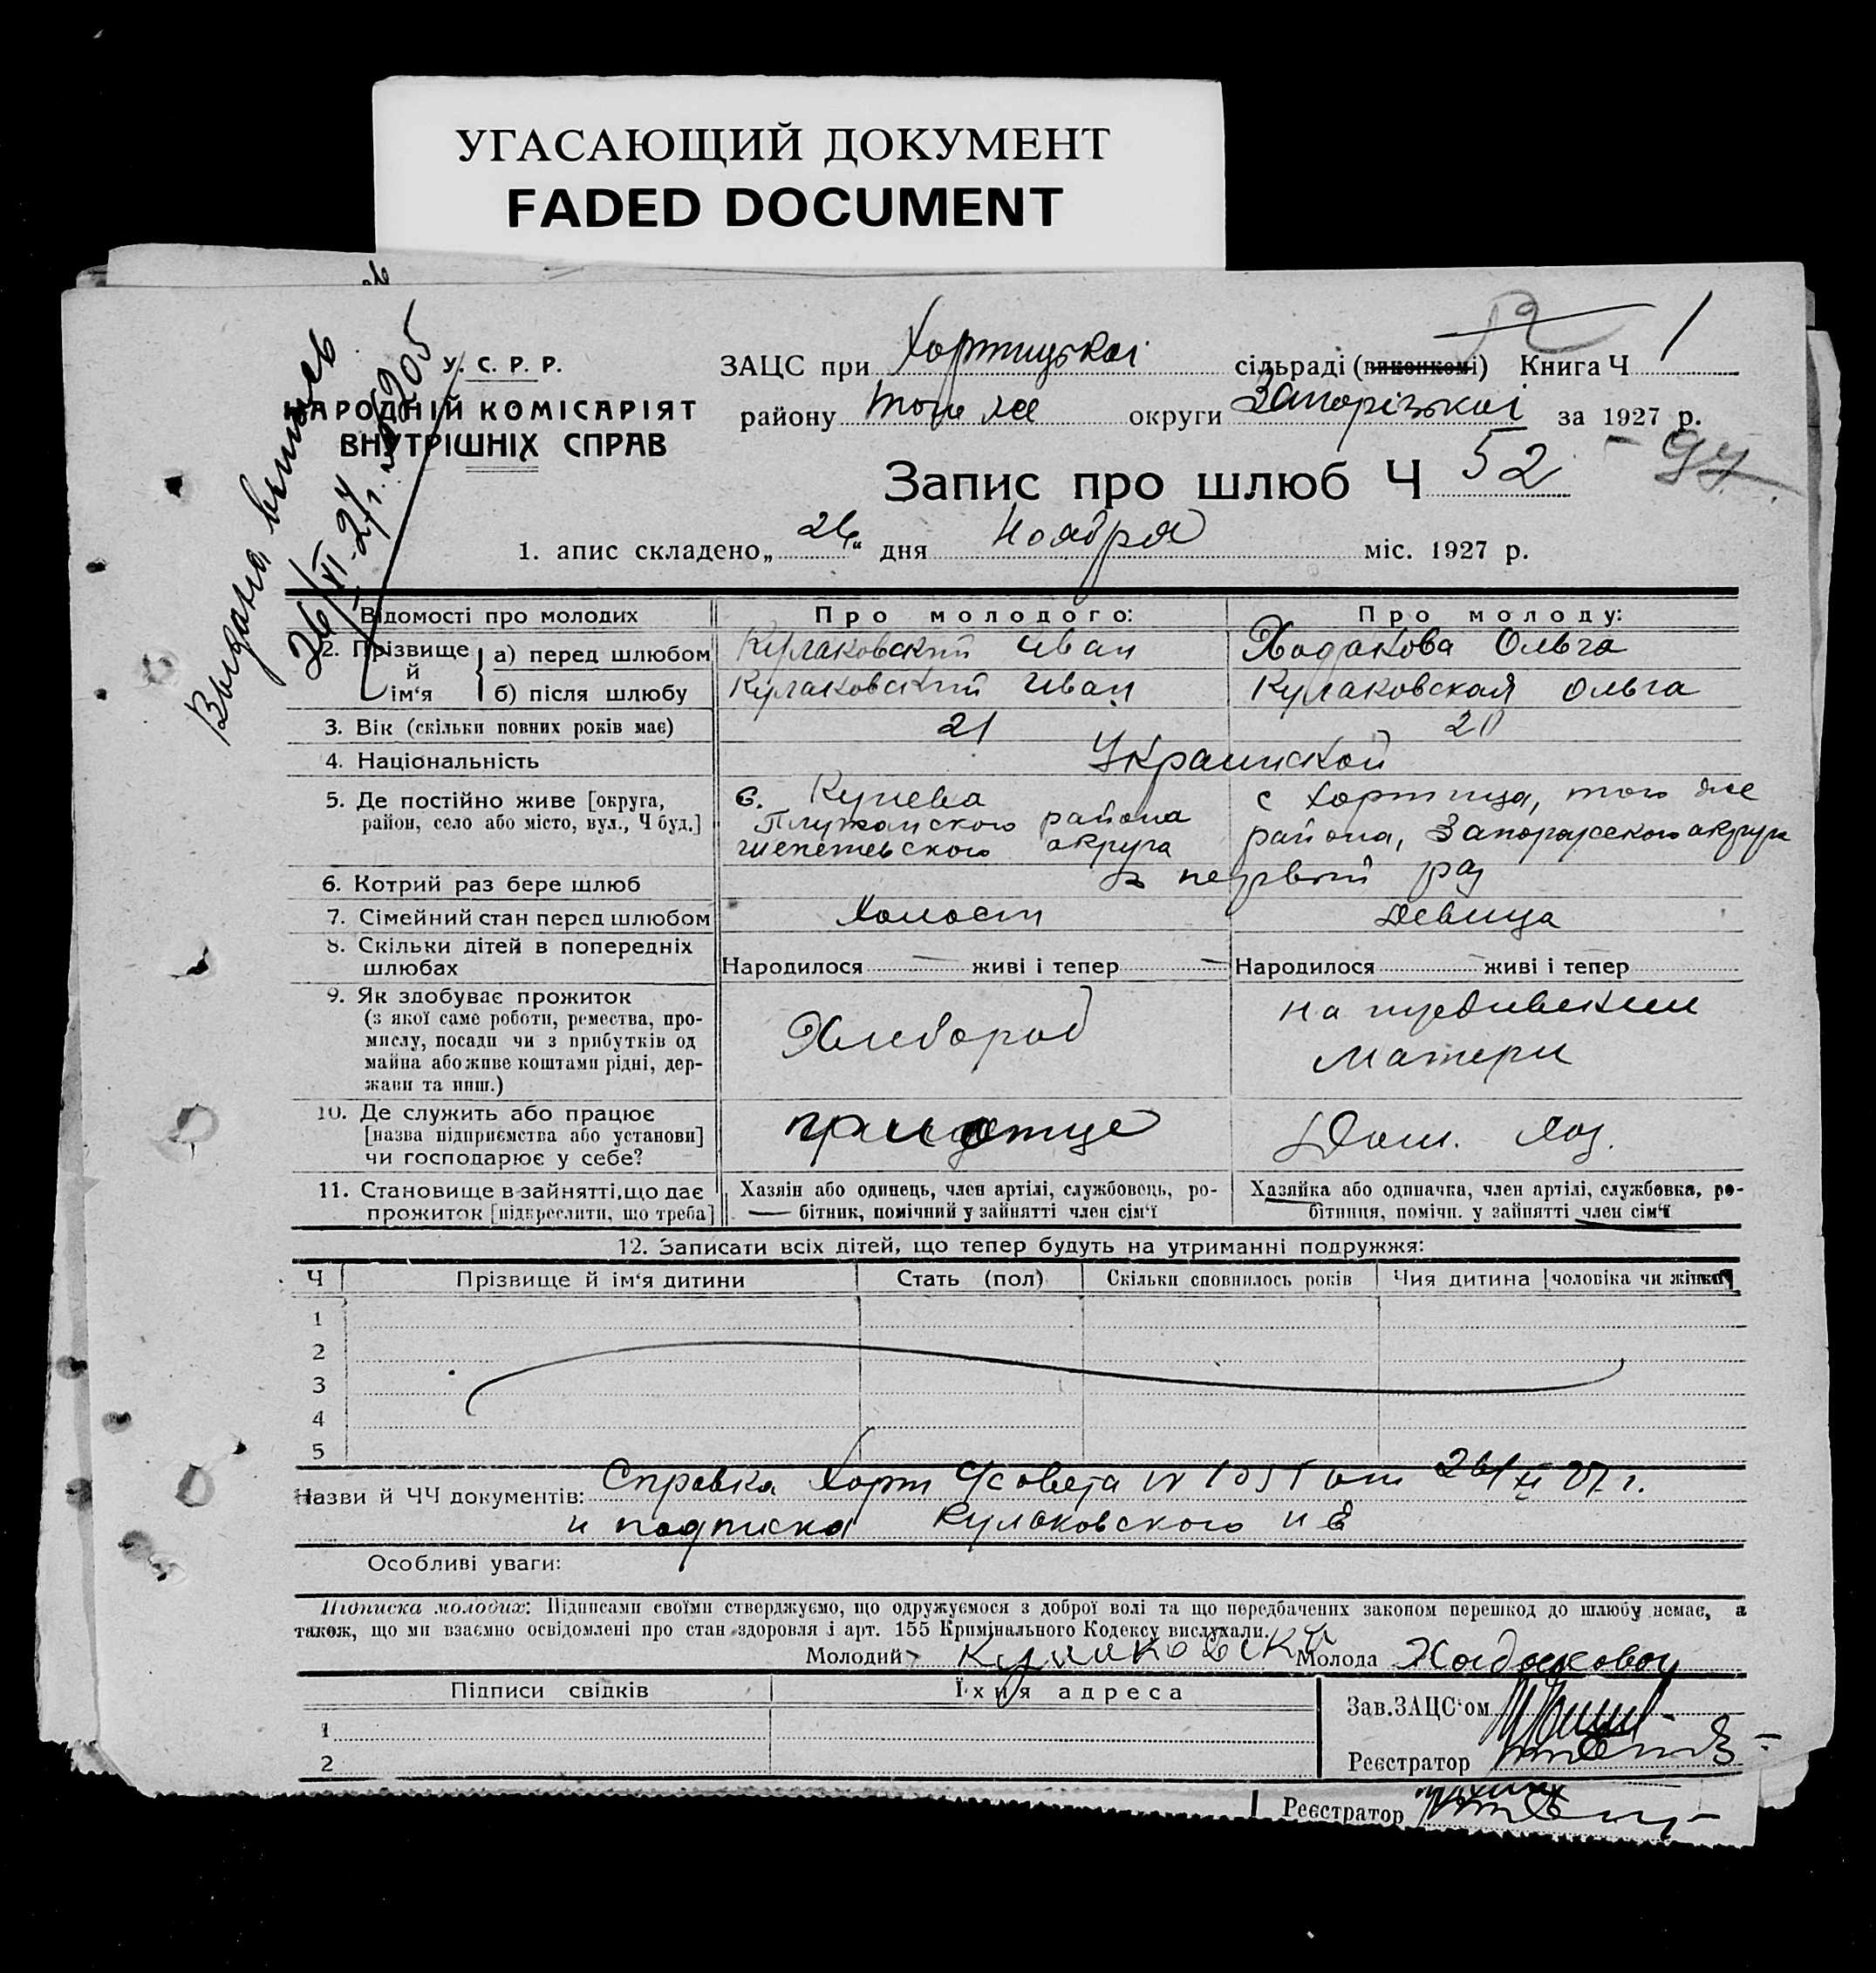 УГАСАЮЩИЙ ДОКУМЕНТ
FADED DOCUMENT
У. С. Р. Р.
НАРОДНІЙ КОМІСАРІЯТ
ВНУТРІШНІХ СПРАВ
Выдана выпись
26/XI-27 г. № 205
ЗАЦС при Хортицькоі сільраді (виконкомі) Книга Ч 1
12
району того же округи Запорізькоі за 1927 р.
Запис про шлюб Ч 52 - 97.
1. апис складено „26“ дня Ноября міс. 1927 р.
Відомості про молодих Про молодого: Про молоду:
2. Прізвище й ім'я
а) перед шлюбом Кулаковский Иван Ходакова Ольга
б) після шлюбу Кулаковский Иван Кулаковская Ольга
3. Вік (скільки повних років має) 21 20
4. Національність Украинской
5. Де постійно живе [округа, с. Кунева с Хортица, того же
район, село або місто, вул., Ч буд.] Плужанского района района, Запорожского округа
Шепетевского округа
6. Котрий раз бере шлюб в первый раз
7. Сімейний стан перед шлюбом Холост Девица
8. Скільки дітей в попередніх
шлюбах Народилося — живі і тепер — Народилося — живі і тепер
9. Як здобуває прожиток
(з якої саме роботи, ремества, про-
мислу, посади чи з прибутків од
майна або живе коштами рідні, дер-
жави та инш.)
Хлебороб
на иждивении
Матери
10. Де служить або працює
[назва підприємства або установи]
чи господарює у себе?
при отце
Дом. хоз.
11. Становище в зайнятті, що дає Хазяїн або одинець, член артілі, службовець, ро- Хазяйка або одиначка, член артілі, службовка, ро-
прожиток [підкреслити, що треба] бітник, помічний у зайнятті член сім'ї бітниця, помічн. у зайнятті член сім'ї
12. Записати всіх дітей, що тепер будуть на утриманні подружжя:
Ч Прізвище й ім'я дитини Стать (пол) Скільки сповнилось років Чия дитина [чоловіка чи жінки]
1
2
3
4
5
Назви й ЧЧ документів: Справка Хорт с/совета N 1051 от 26/XI 27 г.
и подписка Кулаковского и Е
Особливі уваги:
Підписка молодих: Підписами своїми стверджуємо, що одружуємося з доброї волі та що передбачених законом перешкод до шлюбу немає, а
також, що ми взаємно освідомлені про стан здоровля і арт. 155 Кримінального Кодексу вислухали.
Молодий Молода Ходокова
Підписи свідків Їхня адреса
Зав.ЗАЦС'ом
1
Реєстратор
2
Реєстратор